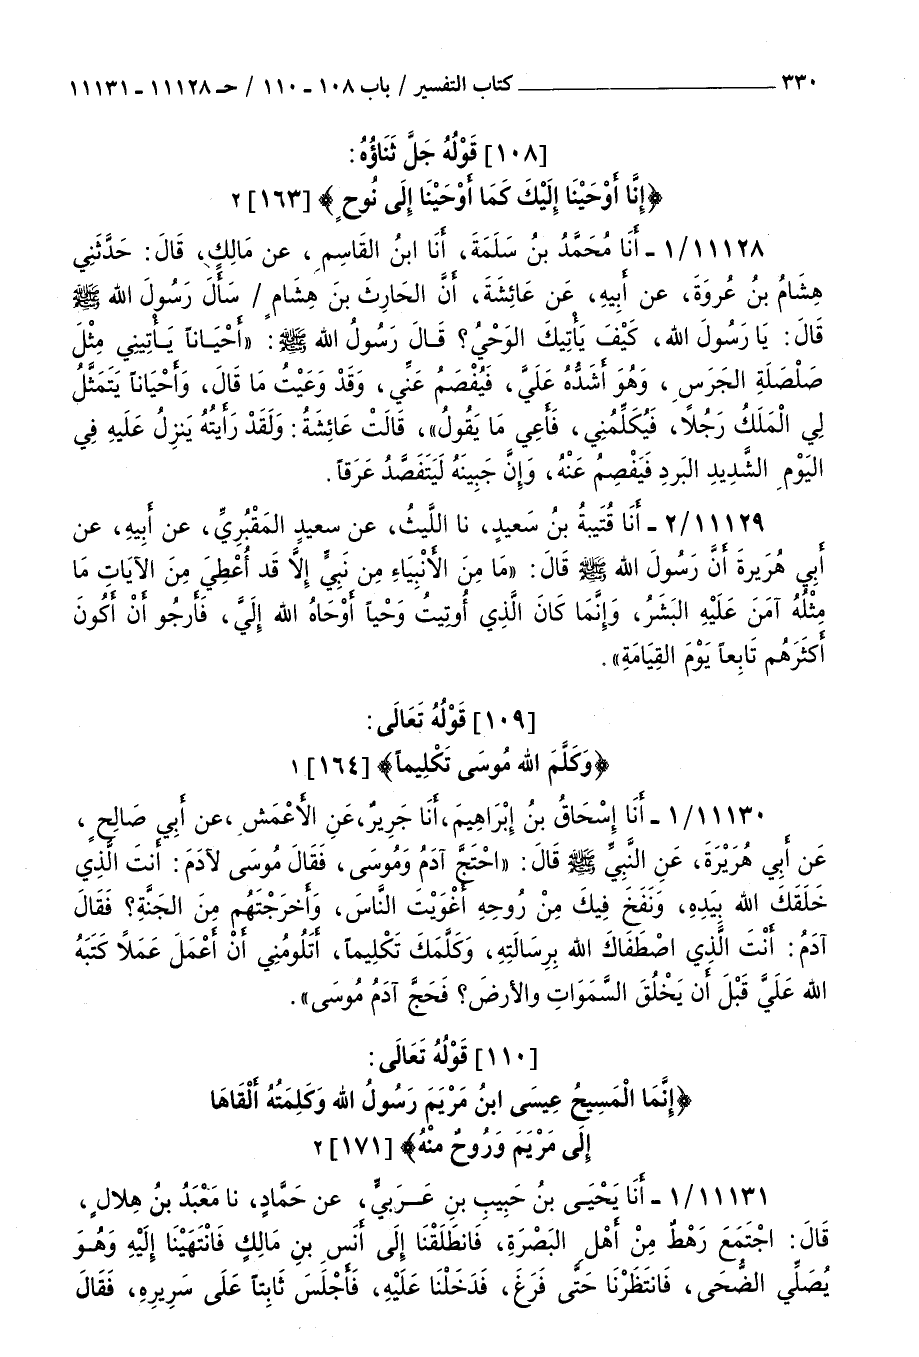 ٣٣٠ ــــــــــــــــــــــــ كتاب التفسير / باب ١٠٨ - ١١٠ / حـ ١١١٢٨ - ١١١٣١
[١٠٨] قَوْلُهُ جَلَّ ثَنَاؤُهُ:
﴿إِنَّا أَوْحَيْنَا إِلَيْكَ كَمَا أَوْحَيْنَا إِلَى نُوحٍ﴾ [١٦٣] ٢
١/١١١٢٨ - أَنَا مُحَمَّدُ بنُ سَلَمَةَ، أَنَا ابنُ القَاسِمِ، عن مَالِكٍ، قَالَ: حَدَّثَنِي
هِشَامُ بنُ عُروَةَ، عن أَبِيهِ، عَن عَائِشَةَ، أَنَّ الحَارِثَ بنَ هِشَامٍ / سَأَلَ رَسُولَ الله ﷺ
قَالَ: يَا رَسُولَ الله، كَيْفَ يَأْتِيكَ الوَحْيُ؟ قَالَ رَسُولُ الله ﷺ: «أَحْيَاناً يَأْتِينِي مِثْلَ
صَلْصَلَةِ الجَرَسِ، وَهُوَ أَشَدُّهُ عَلَيَّ، فَيُفْصَمُ عَنِّي، وَقَدْ وَعَيْتُ مَا قَالَ، وَأَحْيَاناً يَتَمَثَّلُ
لِي الْمَلَكُ رَجُلًا، فَيُكَلِّمُنِي، فَأَعِي مَا يَقُولُ»، قَالَتْ عَائِشَةُ: وَلَقَدْ رَأَيتُهُ يَنزِلُ عَلَيهِ فِي
اليَوْمِ الشَّدِيدِ البَردِ فَيَفْصِمُ عَنْهُ، وَإِنَّ جَبِينَهُ لَيَتَفَصَّدُ عَرَقاً.
٢/١١١٢٩ - أَنَا قُتَيبةُ بنُ سَعيدٍ، نا اللَّيثُ، عن سعيدٍ المَقْبُرِيِّ، عن أَبيهِ، عن
أَبِي هُرَيرةَ أَنَّ رَسُولَ الله ﷺ قَالَ: «مَا مِنَ الأَنْبِيَاءِ مِن نَبِيٍّ إِلَّا قَد أُعْطِيَ مِنَ الآيَاتِ مَا
مِثْلُهُ آمَنَ عَلَيْهِ البَشَرُ، وَإِنَّمَا كَانَ الَّذِي أُوتِيتُ وَحْياً أَوْحَاهُ الله إِلَيَّ، فَأَرجُو أَنْ أَكُونَ
أَكثَرَهُم تَابِعاً يَوْمَ القِيَامَةِ».
[١٠٩] قَوْلُهُ تَعَالَى:
﴿وَكَلَّمَ الله مُوسَى تَكْلِيماً﴾ [١٦٤] ١
١/١١١٣٠ - أَنَا إِسْحَاقُ بنُ إِبْرَاهِيمَ، أَنَا جَرِيرٌ، عَنِ الأَعْمَشِ، عن أَبِي صَالِحٍ،
عَن أَبِي هُرَيْرَةَ، عَنِ النَّبِيِّ ﷺ قَالَ: «احْتَجَّ آدَمُ وَمُوسَى، فَقَالَ مُوسَى لآدَمَ: أَنتَ الَّذِي
خَلَقَكَ الله بِيَدِهِ، وَنَفَخَ فِيكَ مِنْ رُوحِهِ أَغْوَيْتَ النَّاسَ، وَأَخرَجْتَهُم مِنَ الجَنَّةِ؟ فَقَالَ
آدَمُ: أَنْتَ الَّذِي اصْطَفَاكَ الله بِرِسَالَتِهِ، وَكَلَّمَكَ تَكْلِيماً، أَتَلُومُنِي أَنْ أَعْمَلَ عَمَلًا كَتَبَهُ
الله عَلَيَّ قَبْلَ أَن يَخْلُقَ السَّمَوَاتِ والأرضَ؟ فَحَجَّ آدَمُ مُوسَى».
[١١٠] قَوْلُهُ تَعَالَى:
﴿إِنَّمَا الْمَسِيحُ عِيسَى ابنُ مَرْيَمَ رَسُولُ الله وَكَلِمَتُهُ أَلْقَاهَا
إِلَى مَرْيَمَ وَرُوحٌ مِنْهُ﴾ [١٧١] ٢
١/١١١٣١ - أَنَا يَحْيَى بنُ حَبِيبِ بنِ عَرَبيٍّ، عن حَمَّادٍ، نا مَعْبَدُ بنُ هِلالٍ،
قَالَ: اجْتَمَعَ رَهْطٌ مِنْ أَهْلِ البَصْرَةِ، فَانطَلَقْنَا إِلَى أَنَسِ بنِ مَالِكٍ فَانْتَهَيْنَا إِلَيْهِ وَهُوَ
يُصَلِّي الضُّحَى، فَانتَظَرْنَا حَتَّى فَرَغَ، فَدَخَلْنَا عَلَيْهِ، فَأَجْلَسَ ثَابِتاً عَلَى سَرِيرِهِ، فَقَالَ